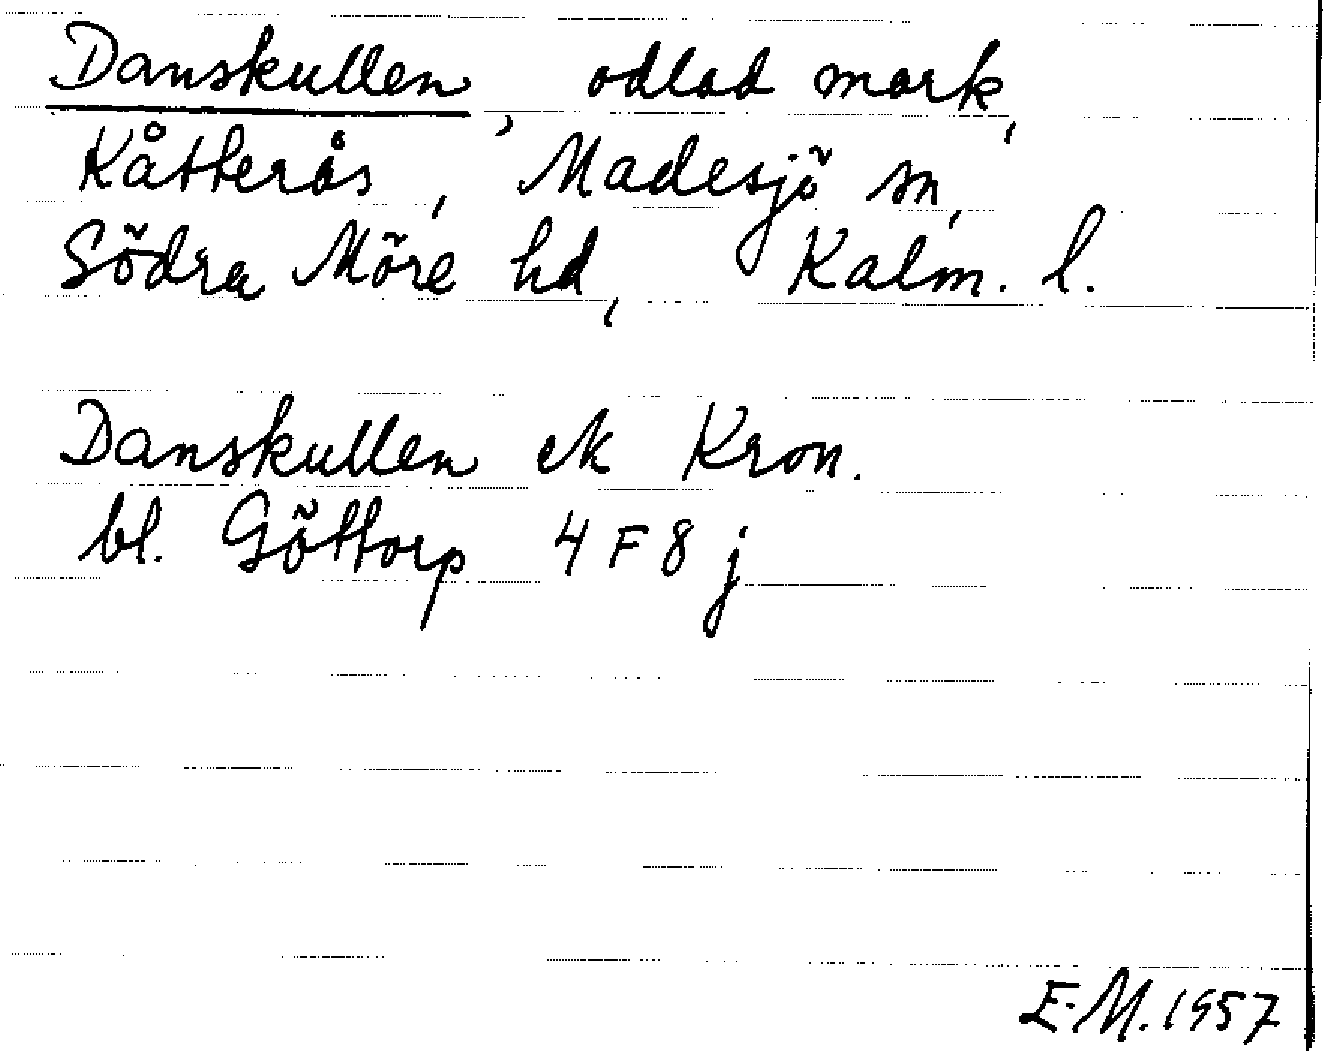 Danskullen, odlad mark,
Kåtterås, Madesjö sn,
Södra Möre hd, Kalm. l.
Danskullen ek Kron.
bl. Göttorp 4 F 8 j
E.M. 1957